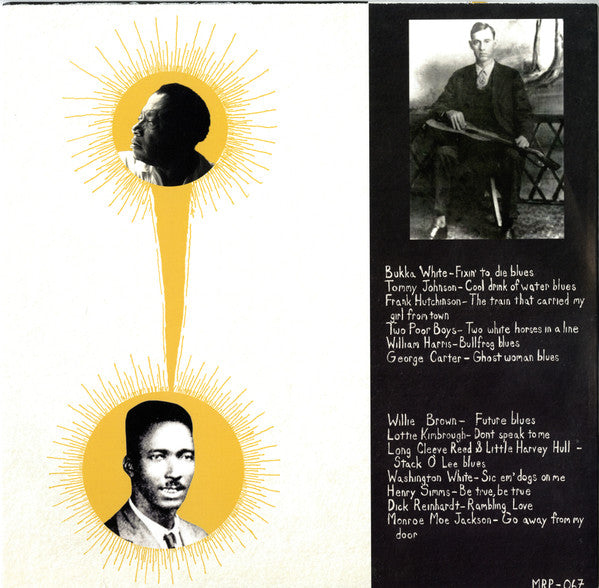 Bukka White-Fixin' to die blues
Tommy Johnson-Cool drink of water blues
Frank Hutchinson-The train that carried my
girl from town
Two Poor Boys-Two white horses in a line
William Harris-Bullfrog blues
George Carter-Ghost woman blues
Willie Brown- Future blues
Lottie Kimbrough-Dont speak to me
Long Cleeve Reed & Little Harvey Hull -
Stack O' Lee blues
Washington White-Sic em' dogs on me
Henry Simms-Be true, be true
Dick Reinhardt-Rambling Love
Monroe Moe Jackson-Go away from my
door
MRP-067